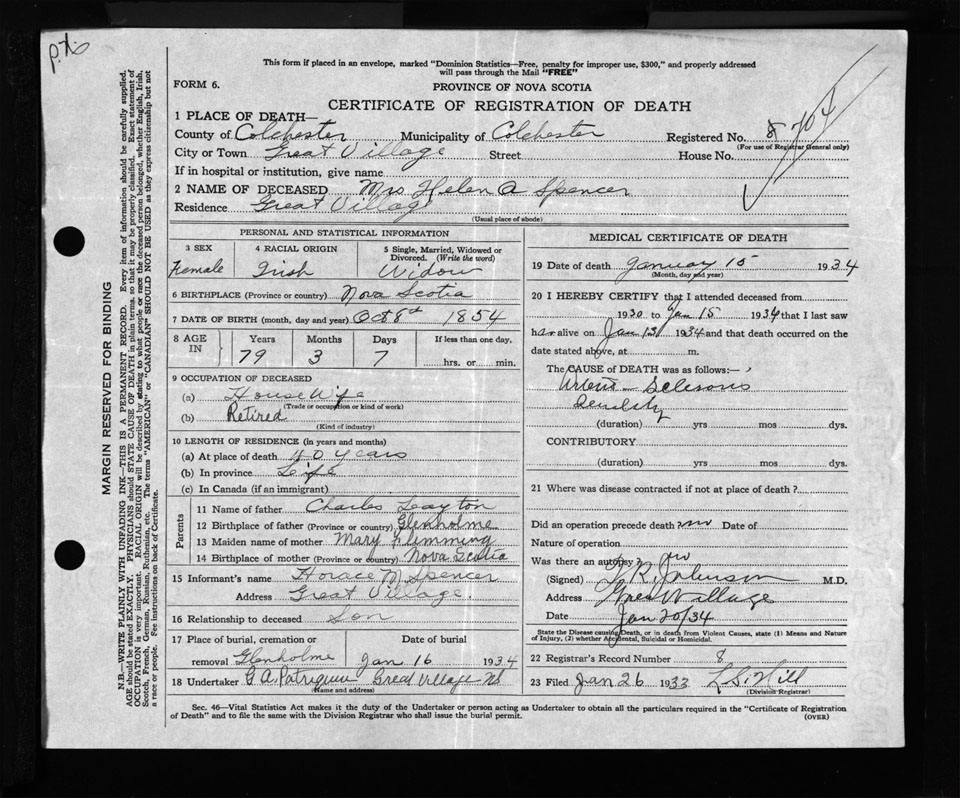 p.x.
This form if placed in an envelope, marked "Dominion Statistics—Free, penalty for improper use, $300," and properly addressed
will pass through the Mail "FREE"
FORM 6.
PROVINCE OF NOVA SCOTIA
CERTIFICATE OF REGISTRATION OF DEATH
1 PLACE OF DEATH—
County of Colchester Municipality of Colchester Registered No. 8 704
(For use of Registrar General only)
City or Town Great Village Street House No.
If in hospital or institution, give name
2 NAME OF DECEASED Mrs Helen A Spencer
Residence Great Village
(Usual place of abode)
PERSONAL AND STATISTICAL INFORMATION
3 SEX 4 RACIAL ORIGIN 5 Single, Married, Widowed or Divorced. (Write the word)
Female Irish Widow
6 BIRTHPLACE (Province or country) Nova Scotia
7 DATE OF BIRTH (month, day and year) Oct 8th 1854
8 AGE IN Years Months Days If less than one day,
79 3 7 hrs. or min.
9 OCCUPATION OF DECEASED
(a) House Wife
(Trade or occupation or kind of work)
(b) Retired
(Kind of industry)
10 LENGTH OF RESIDENCE (in years and months)
(a) At place of death 40 years
(b) In province Life
(c) In Canada (if an immigrant)
Parents
11 Name of father Charles Layton
12 Birthplace of father (Province or country) Glenholme
13 Maiden name of mother Mary Flemming
14 Birthplace of mother (Province or country) Nova Scotia
15 Informant's name Horace M Spencer
Address Great Village
16 Relationship to deceased Son
17 Place of burial, cremation or Date of burial
removal Glenholme Jan 16 1934
18 Undertaker G A Patriquin Great Village NS
(Name and address)
MEDICAL CERTIFICATE OF DEATH
19 Date of death January 15 1934
(Month, day and year)
20 I HEREBY CERTIFY that I attended deceased from
1930 to Jan 15 1934 that I last saw
her alive on Jan 13 1934 and that death occurred on the
date stated above, at m.
The CAUSE OF DEATH was as follows:—
Arterio Sclerosis
(duration) yrs mos dys.
CONTRIBUTORY
(duration) yrs mos. dys.
21 Where was disease contracted if not at place of death?
Did an operation precede death? no Date of
Nature of operation
Was there an autopsy? no
(Signed) Johnson M.D.
Address Great Village
Date Jan 20/34
State the Disease causing Death, or in death from Violent Causes, state (1) Means and Nature
of Injury, (2) whether Accidental, Suicidal or Homicidal.
22 Registrar's Record Number 8
23 Filed Jan 26 1933 L. S. Hill
(Division Registrar)
Sec. 46—Vital Statistics Act makes it the duty of the Undertaker or person acting as Undertaker to obtain all the particulars required in the "Certificate of Registration
of Death" and to file the same with the Division Registrar who shall issue the burial permit. (OVER)
MARGIN RESERVED FOR BINDING
N.B.—WRITE PLAINLY WITH UNFADING INK—THIS IS A PERMANENT RECORD. Every item of information should be carefully supplied.
AGE should be stated EXACTLY. PHYSICIANS should STATE CAUSE OF DEATH in plain terms, so that it may be properly classified. Exact statement of
OCCUPATION is very important. RACIAL ORIGIN will be described by stating to what people or race the deceased person belonged, whether English, Irish,
Scotch, French, German, Russian, Ruthenian, etc. The terms "AMERICAN" or "CANADIAN" SHOULD NOT BE USED as they express citizenship but not
a race or people. See instructions on back of Certificate.